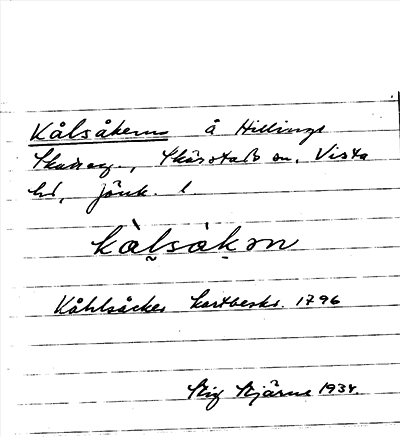 Kålsåkerna å Hillinge
Skatteg., Skärstads sn, Vista
hd, Jönk. l.
kålsåkən
Kåhlsåcker kartbeskr. 1796
Stig Stjärne 1934.